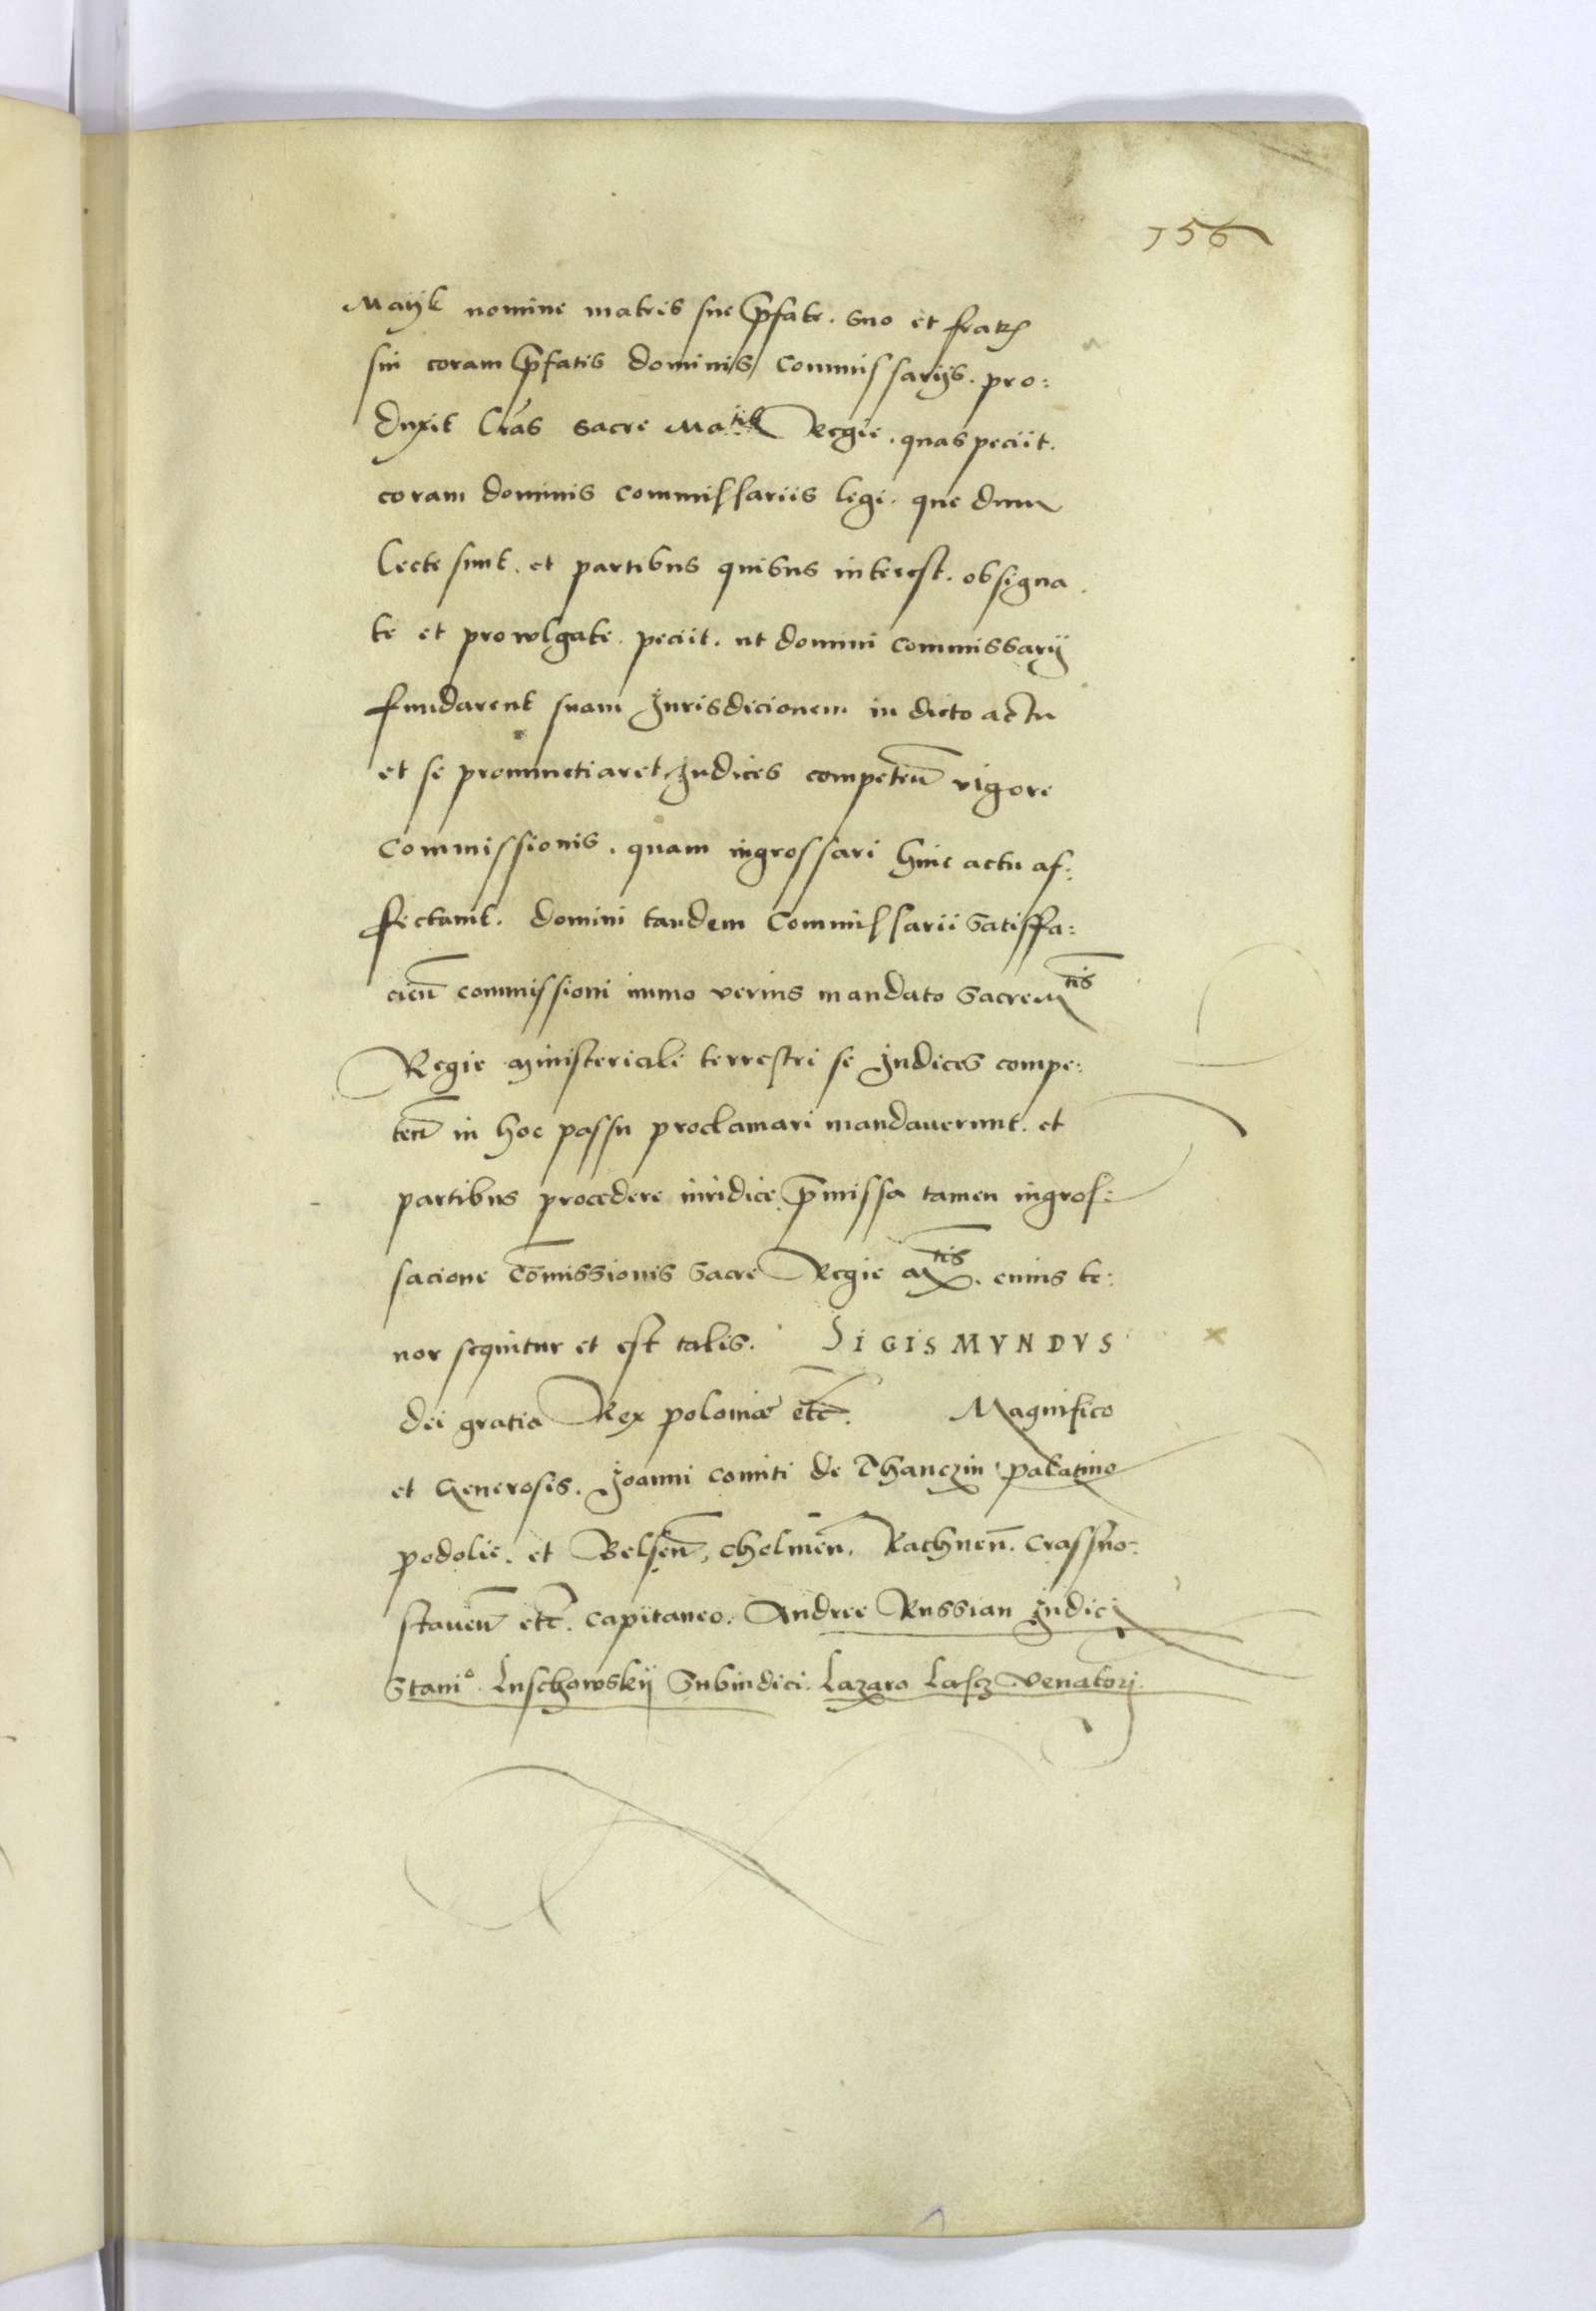 156
Mayk nomine matris sue p̄fate. suo et fratrꝭ
sui coram p̄fatis dominis Commissarijs. pro:
duxit Lrās sacre Matis Regie. quas peciit.
coram dominis commissariis legi. que dum
lecte sunt. et partibus quibus interest. obsigna
te et prowlgate. peciit. ut domini commissarij
fundarent suam Jurisdicionem in dicto actu
et se pronunctiaret Judices competeñ vigore
Commissionis. quam ingrossari huic actu af:
fectauit. Domini tandem Commissarii Satisffa:
cieñ commissioni immo verius mandato Sacre Mtis
Regie ministeriali terrestri se Judices compe:
teñ in hoc passu proclamari mandauerunt. et
partibus procedere iuridice p̄missa tamen ingros:
sacione Cōmissionis Sacre Regie Mtis. cuius te:
nor sequitur et est talis. SIGISMVNDVS
dei gratia Rex poloniæ etc̄. Magnifico
et Generosis. Joanni comiti de Thanczin palatino
podolie. et Belseñ, Chelmeñ, Rathneñ. Crassno:
staueñ etc̄. Capitaneo. Andree Russian Judici
Stanio. Luschowskij Subiudici. Lazaro Lasch Venatorj.